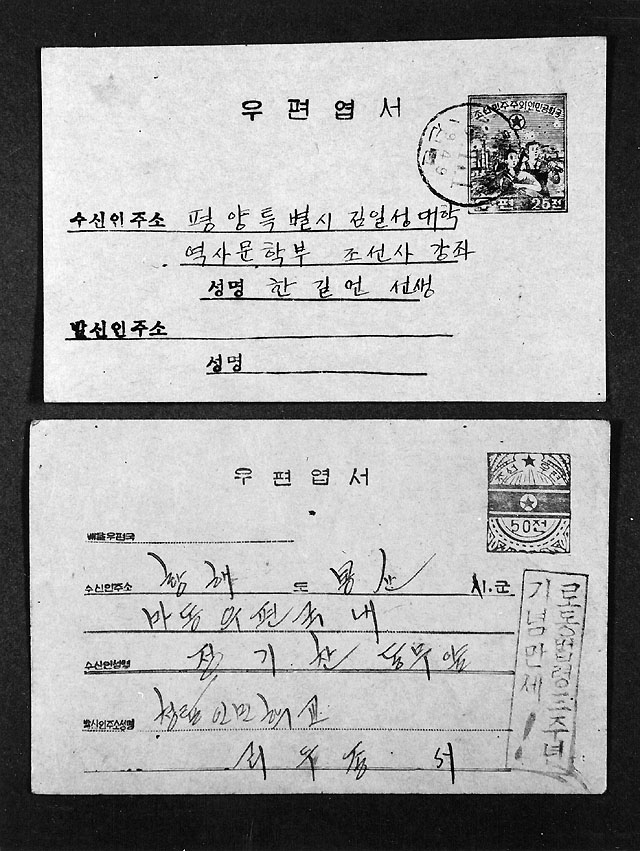 우편엽서
조선민주주의인민공화국
1949
우편 25전
수신인주소 평양특별시 김일성대학
역사문학부 조선사 강좌
성명 한길언 선생
발신인주소
성명
우편엽서
조선 우편
50전
배달우편국
수신인주소 황해 도 봉산 시.군
마동우편국 내
수신인성명 정기찬 동무앞
발신인주소성명 인민학교
서
로동법령 주년
기념만세!